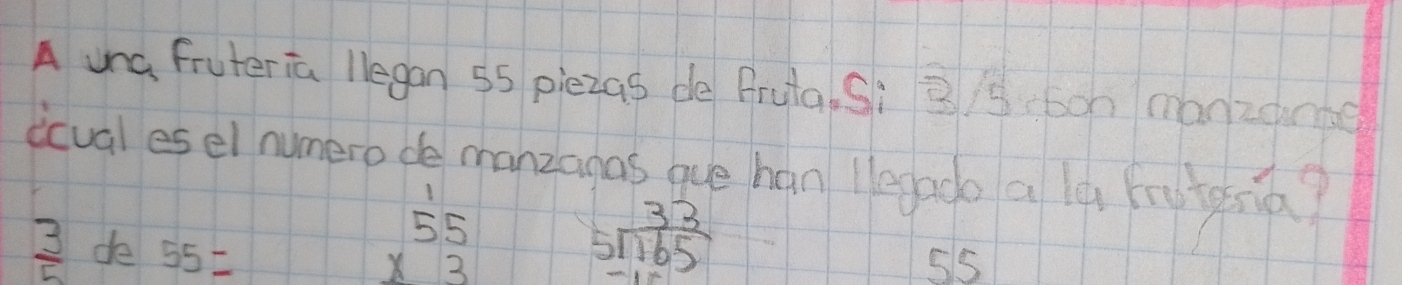 A una fruteria llegan 55 piezas de fruta. Si 3/5 son manzanas
¿cual es el numero de manzanas que han llegado a la frutería?
1
3/5 de 55 =
55
x 3
33
5 165
-15
55